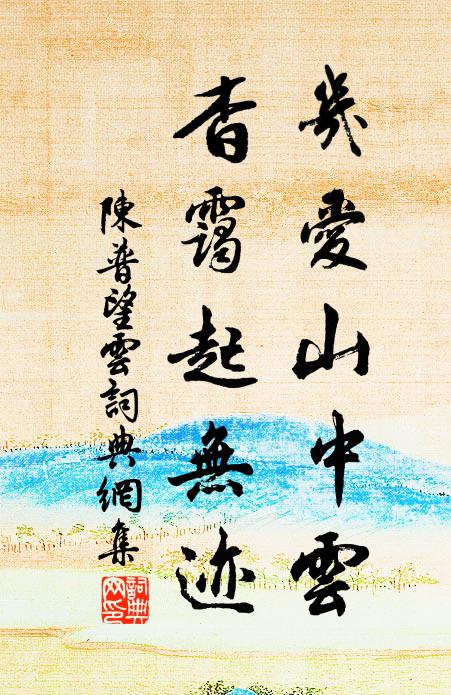 幾愛山中雲
杳靄起無迹
陳普望雲詞典網集
詞典
网印